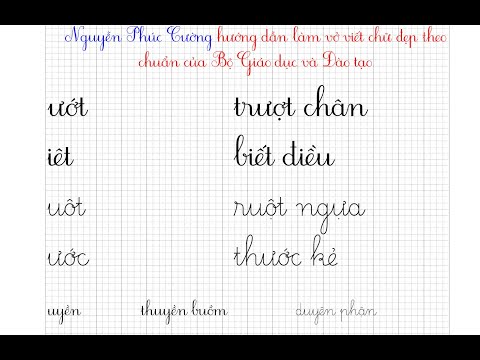 Nguyễn Phúc Cường hướng dẫn làm vở viết chữ đẹp theo
chuẩn của Bộ Giáo dục và Đào tạo
ướt trượt chân
iêt biết điều
uôt ruột ngựa
ước thước kẻ
uyền thuyền buồm duyên phận